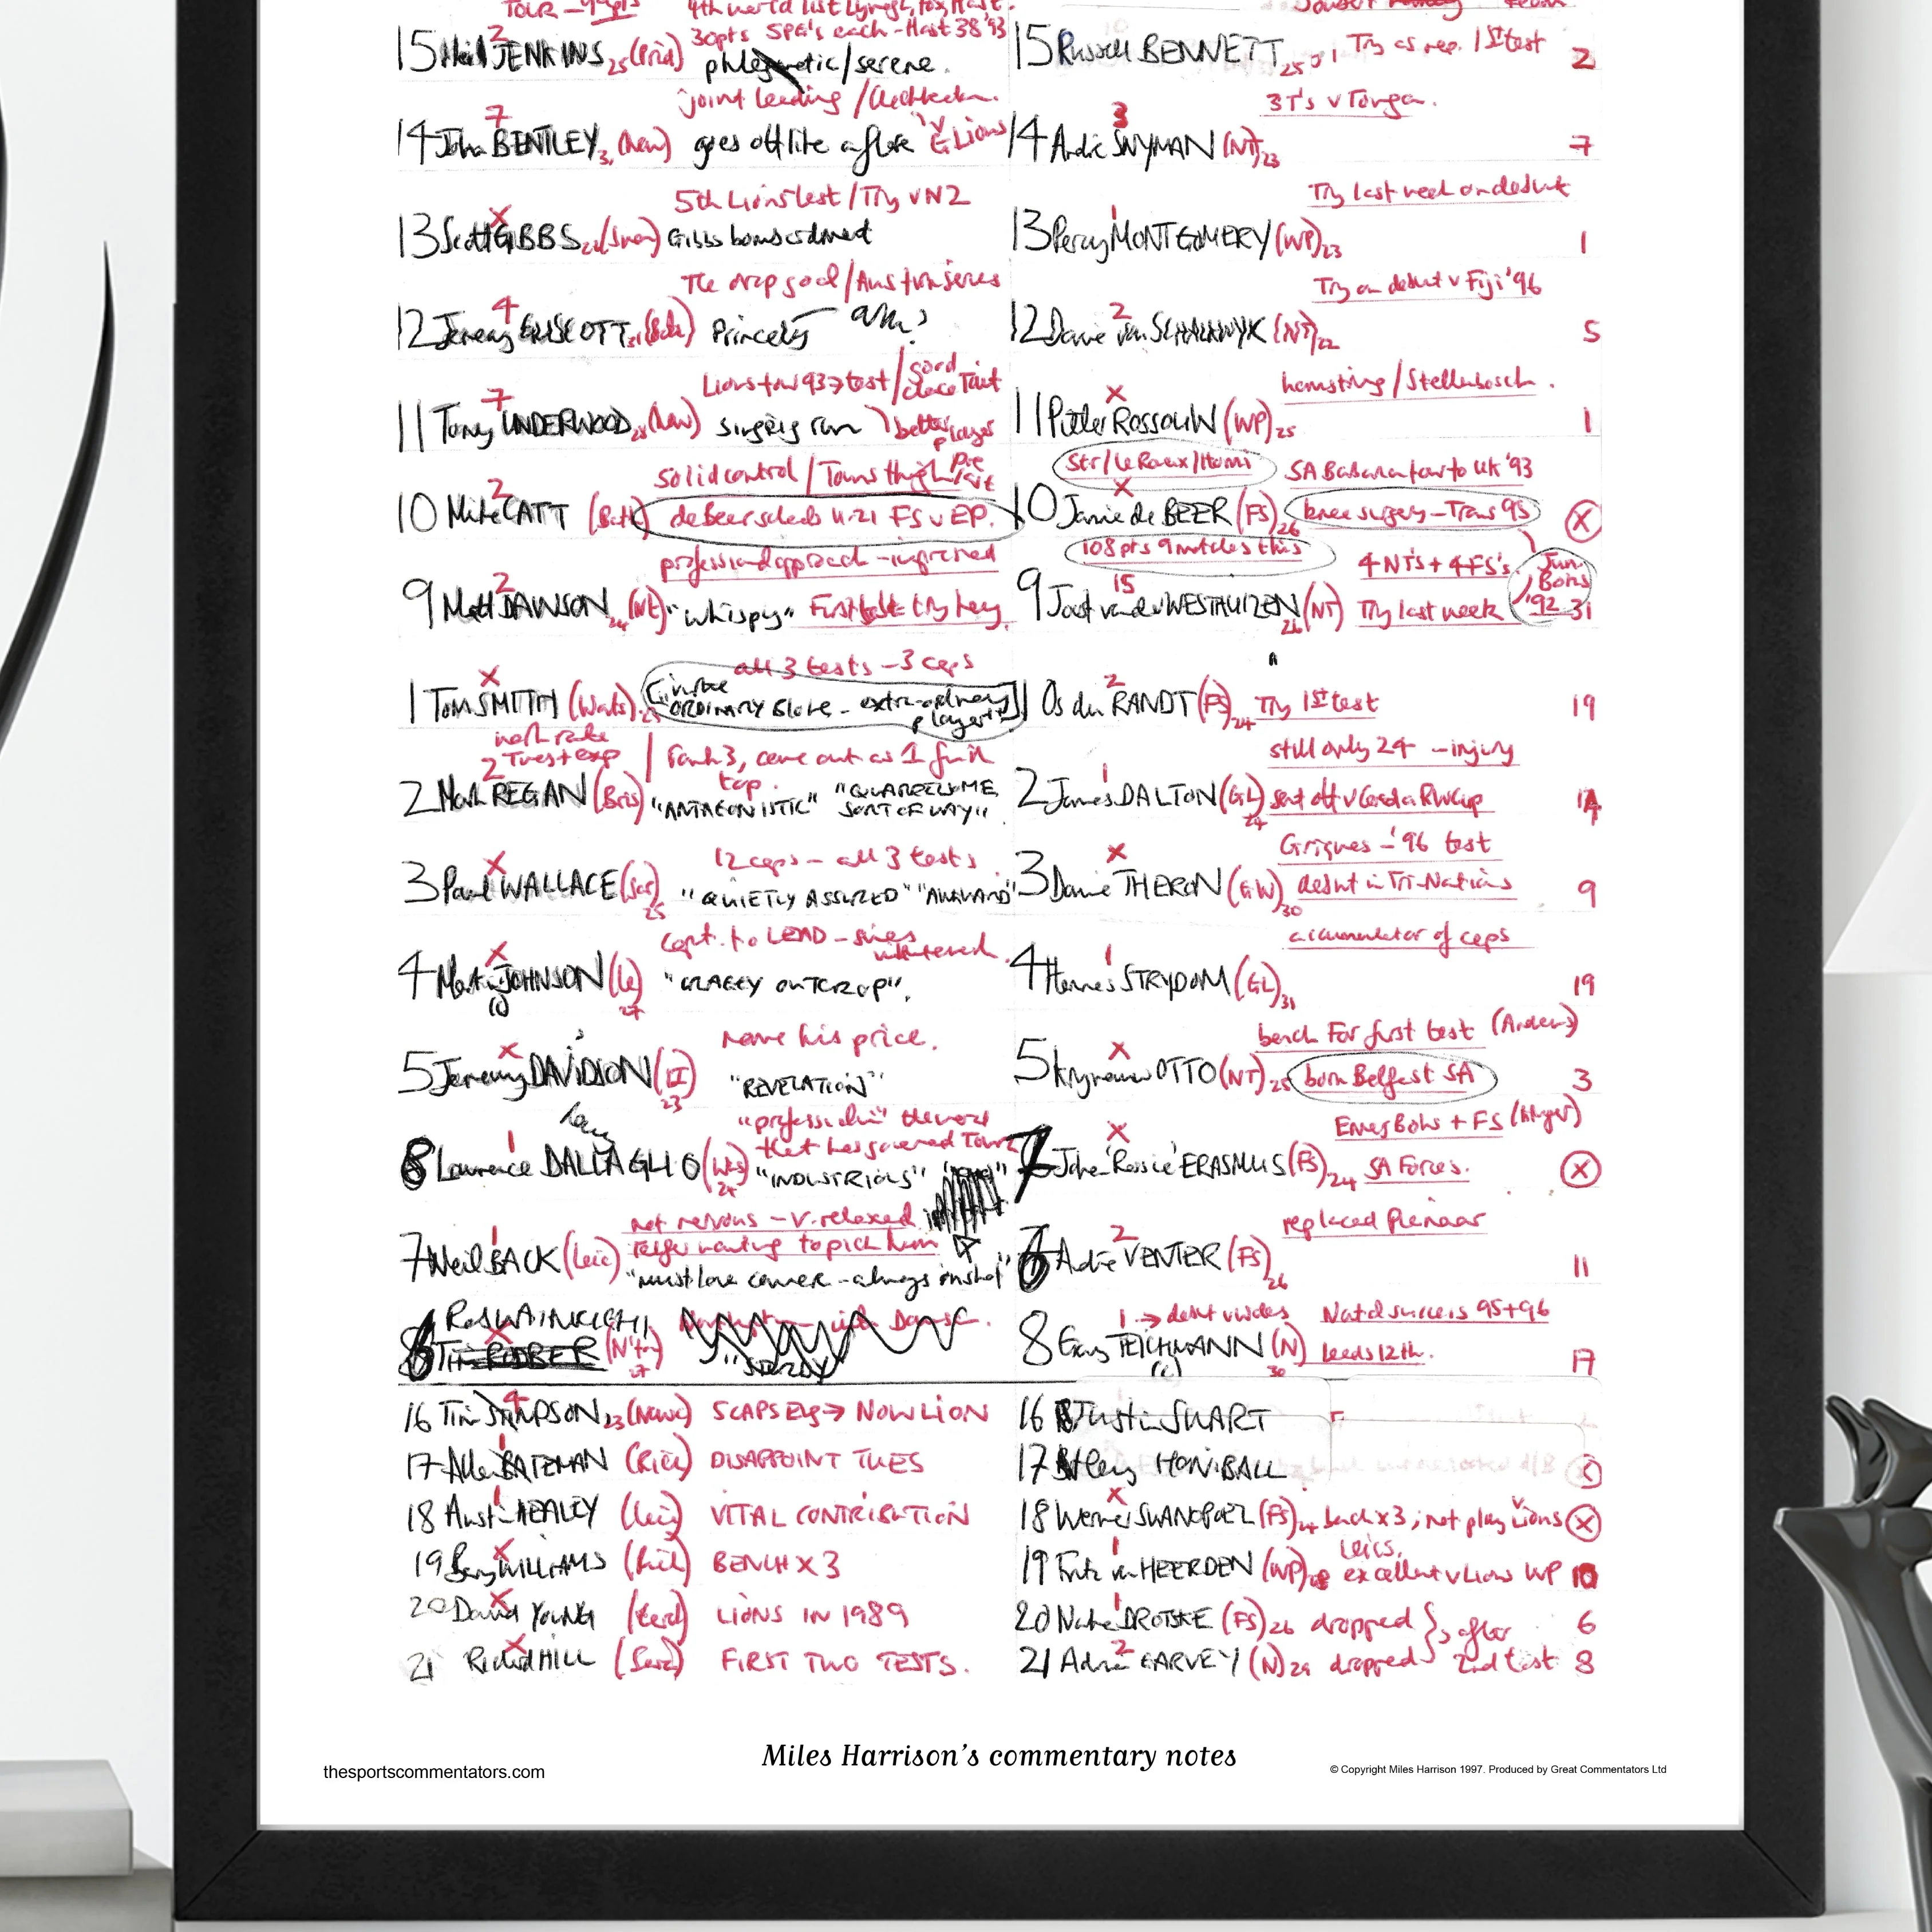 TOUR
15 Neil JENKINS 25 (Prid) 30pts SPG's each - Hast 38 '93
phlegmatic/serene.
joint leading
7
14 John BENTLEY (New) goes off like a flare v Lions
5th Lions test / Try v NZ
13 Scott GIBBS (Swan) Gibbs bombs
The drop goal / Aus + win series
4
12 Jeremy GUSCOTT 31 (Bath) Princely
Lions tour 93 → test / good
7
11 Tony UNDERWOOD 28 (New) better player
solid control / Towns
2
10 Mike CATT (Bath) de Beer U-21 FS v EP.
professional approach - improved
2
9 Matt DAWSON 24 (Nt) "whispy" First test try key.
all 3 tests - 3 caps
x
1 Tom SMITH (Wats) 25 ORDINARY BLOKE - extra-ordinary player"
work rate
2 Tues + exp / Rank 3, came out as 1 for it
top.
2 Mark REGAN (Bris) "ANTAGONISTIC" "QUARRELSOME
SORT OF WAY"
12 caps - all 3 tests
x
3 Paul WALLACE (Sar) 25 "QUIETLY ASSURED" "AWKWARD"
Capt. to LEAD
x
4 Martin JOHNSON (Le) 27 "CRAGGY OUTCROP".
(c)
name his price.
x
5 Jeremy DAVIDSON (LI) 23 "REVELATION"
"professional" the word
that has governed Tour
1
8 Lawrence DALLAGLIO (Was) 24 "INDUSTRIOUS"
not nervous - v. relaxed
wanting to pick him
1
7 Neil BACK (Leic) "must love camera - always in shot"
Rob WAINWRIGHT
6 Tim RODBER (N'ton) 27
16 Tim STIMPSON 23 (Newc) 5 CAPS Eng → NOW LION
17 Allan BATEMAN (Rich) DISAPPOINT TUES
18 Austin HEALEY (Leic) VITAL CONTRIBUTION
19 Barry WILLIAMS BENCH X 3
20 David YOUNG (Card) LIONS IN 1989
21 Richard HILL (Sarc) FIRST TWO TESTS.
15 Russell BENNETT 25 Try as rep. 1st test 2
3 T's v Tonga.
3
14 André SNYMAN (NT) 23 7
Try last week on debut
1
13 Percy MONTGOMERY (WP) 23 1
Try on debut v Fiji '96
2
12 Danie van SCHALKWYK (NT) 22 5
hamstring / Stellenbosch.
x
11 Pieter ROSSOUW (WP) 25 1
Str / Le Roux / Honi SA Barbarian tour to UK '93
x
10 Jannie de BEER (FS) 26 knee surgery - Trans 95 X
108 pts 9 matches this 4 NT's + 4 FS's. Jun. Boks '92
15
9 Joost van der WESTHUIZEN (NT) 26 Try last week 31
2
1 Os du RANDT (FS) 24 Try 1st test 19
still only 24 - injury
1
2 James DALTON (GL) 24 sent off v Canada RW Cup
Griquas - '96 test
x
3 Danie THERON (GW) 30 debut in Tri-Nations 9
accumulator of caps
1
4 Hannes STRYDOM (GL) 31 19
bench for first test (Andrews)
x
5 Krynauw OTTO (NT) 25 born Belfast SA 3
Emerg Boks + FS (Kruger)
x
7 Johan 'Rassie' ERASMUS (FS) 24 SA Forces. X
replaced Pienaar
2
6 André VENTER (FS) 26 11
1 → debut v Wales Natal success 95+96
8 Gary TEICHMANN (N) 30 Leeds 12th. 17
(c)
16 Justin SWART
17 Henry HONIBALL
x
18 Werner SWANEPOEL (FS) 24 bench x 3; not play v Lions X
1 Leics.
19 Fritz van HEERDEN (WP) excellent v Lions WP 10
1
20 Naka DROTSKE (FS) 26 dropped } after 6
2
21 Adrian GARVEY (N) 29 dropped } 2nd test 8
Miles Harrison's commentary notes
thesportscommentators.com
© Copyright Miles Harrison 1997. Produced by Great Commentators Ltd